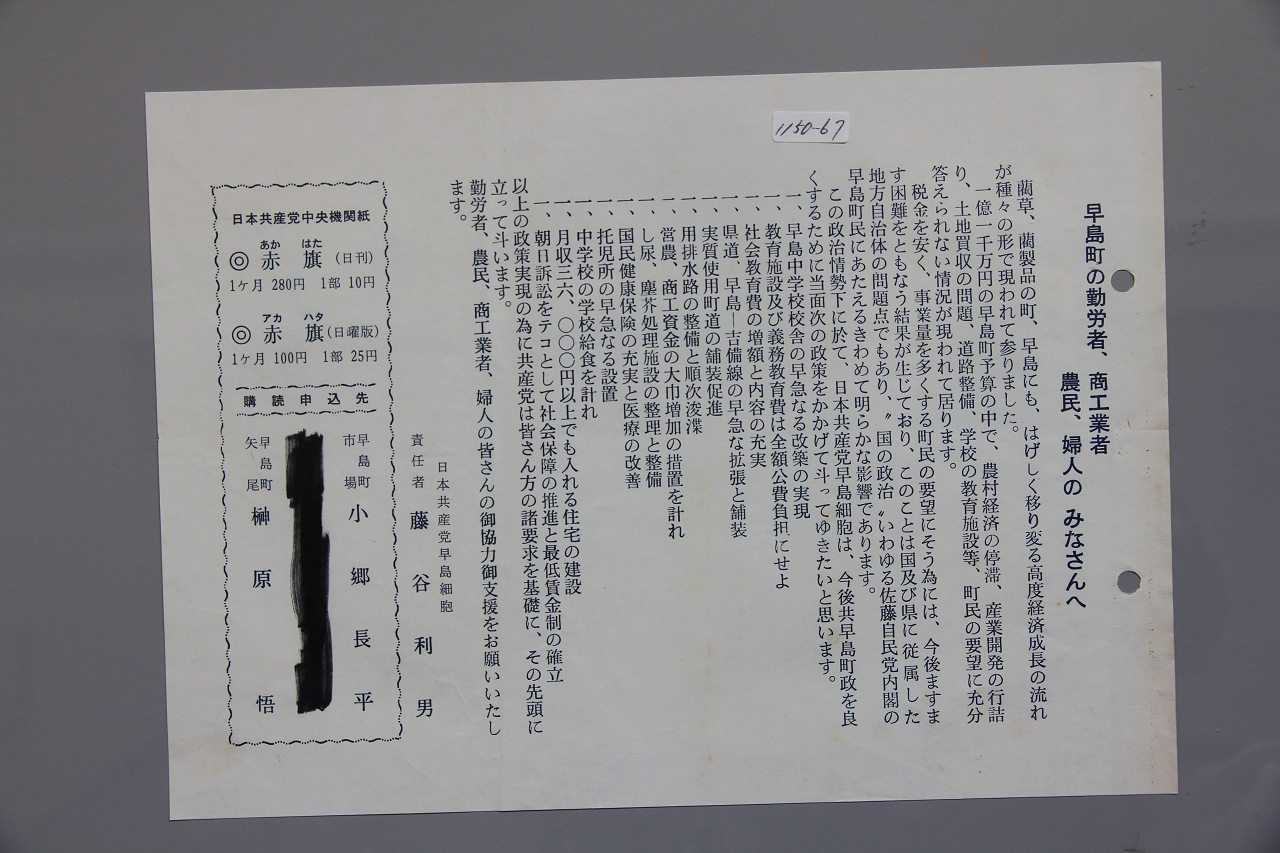 1150-67
早島町の勤労者、商工業者
農民、婦人の みなさんへ
藺草、藺製品の町、早島にも、はげしく移り変る高度経済成長の流れ
が種々の形で現われて参りました。
一億一千万円の早島町予算の中で、農村経済の停滞、産業開発の行詰
り、土地買収の問題、道路整備、学校の教育施設等、町民の要望に充分
答えられない情況が現われて居ります。
税金を安く、事業量を多くする町民の要望にそう為には、今後ますま
す困難をともなう結果が生じており、このことは国及び県に従属した
地方自治体の問題点でもあり、〝国の政治〟いわゆる佐藤自民党内閣の
早島町民にあたえるきわめて明らかな影響であります。
この政治情勢下に於て、日本共産党早島細胞は、今後共早島町政を良
くするために当面次の政策をかかげて斗ってゆきたいと思います。
一、早島中学校校舎の早急なる改築の実現
一、教育施設及び義務教育費は全額公費負担にせよ
一、社会教育費の増額と内容の充実
一、県道、早島―吉備線の早急な拡張と舗装
一、実質使用町道の舗装促進
一、用排水路の整備と順次浚渫
一、営農、商工資金の大巾増加の措置を計れ
一、し尿、塵芥処理施設の整理と整備
一、国民健康保険の充実と医療の改善
一、托児所の早急なる設置
一、中学校の学校給食を計れ
一、月収三六、〇〇〇円以上でも入れる住宅の建設
一、朝日訴訟をテコとして社会保障の推進と最低賃金制の確立
以上の政策実現の為に共産党は皆さん方の諸要求を基礎に、その先頭に
立って斗います。
勤労者、農民、商工業者、婦人の皆さんの御協力御支援をお願いいたし
ます。
日本共産党早島細胞
責任者 藤谷利男
日本共産党中央機関紙
あか はた
◎赤旗(日刊)
1ヶ月 280円 1部 10円
アカ ハタ
◎赤旗(日曜版)
1ヶ月 100円 1部 25円
購読申込先
早島町市場 小郷長平
早島町矢尾 榊原悟